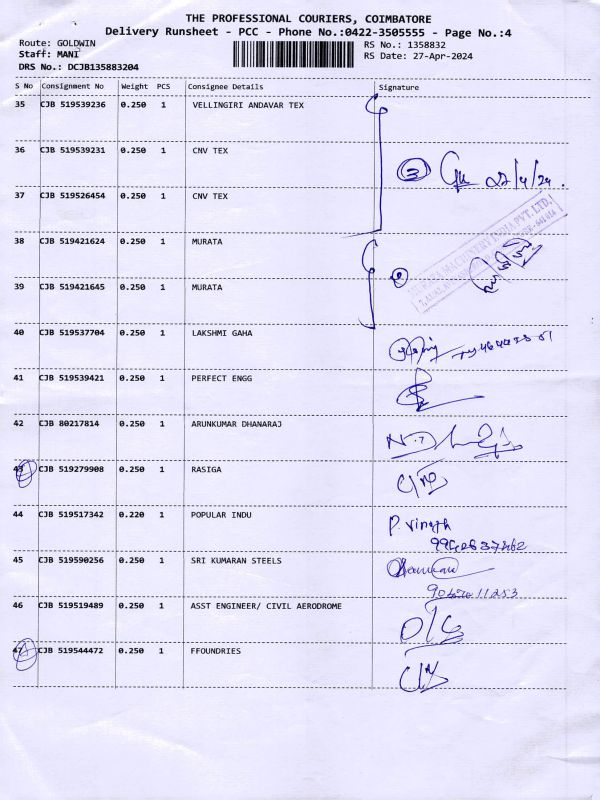 THE PROFESSIONAL COURIERS, COIMBATORE
Delivery Runsheet - PCC - Phone No.:0422-3505555 - Page No.:4
Route: GOLDWIN
RS No.: 1358832
Staff: MANI
RS Date: 27-Apr-2024
DRS No.: DCJB135883204
S No Consignment No Weight PCS Consignee Details Signature
35 CJB 519539236 0.250 1 VELLINGIRI ANDAVAR TEX
36 CJB 519539231 0.250 1 CNV TEX
3 27/4/24.
37 CJB 519526454 0.250 1 CNV TEX
38 CJB 519421624 0.250 1 MURATA
MACHINERY INDIA PVT. LTD.
39 CJB 519421645 0.250 1 MURATA
2
40 CJB 519537704 0.250 1 LAKSHMI GAHA
41 CJB 519539421 0.250 1 PERFECT ENGG
42 CJB 80217814 0.250 1 ARUNKUMAR DHANARAJ
43 CJB 519279908 0.250 1 RASIGA
44 CJB 519517342 0.220 1 POPULAR INDU
P. Vinoth
45 CJB 519590256 0.250 1 SRI KUMARAN STEELS
46 CJB 519519489 0.250 1 ASST ENGINEER/ CIVIL AERODROME
47 CJB 519544472 0.250 1 FFOUNDRIES